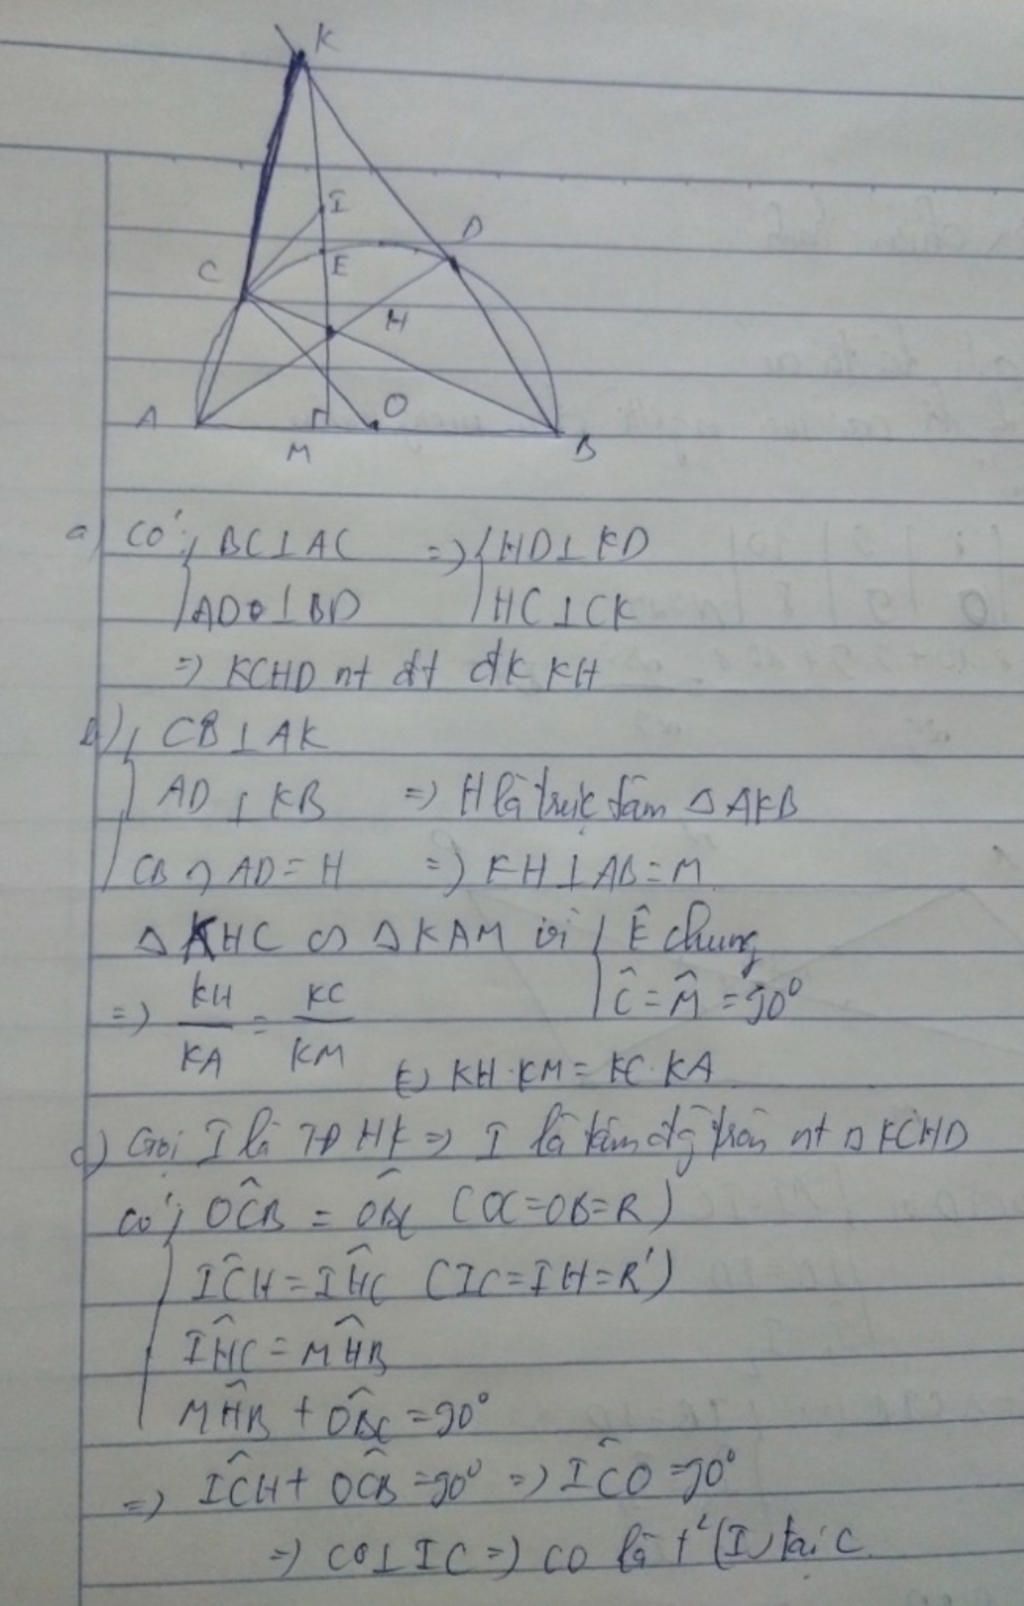 K
I
D
E
C
H
A
O
M
B
a) Có: BC⊥AC => HD⊥KD
AD⊥BD HC⊥CK
=> KCHD nt đt đk KH
b) CB⊥AK
AD⊥KB => H là trực tâm △AKB
CB∩AD=H => KH⊥AB=M
△KHC ∽ △KAM vì K̂ chung
Ĉ=M̂=90°
=> KH/KA = KC/KM
<=> KH.KM=KC.KA
c) Gọi I là TĐ HK => I là tâm đg tròn nt △KCHD
có: OĈB = OB̂C (OC=OB=R)
IĈH=IĤC (IC=IH=R')
IĤC=MĤB
MĤB + OB̂C=90°
=> IĈH+OĈB=90° => IĈO=90°
=> CO⊥IC => CO là t² (I) tại C